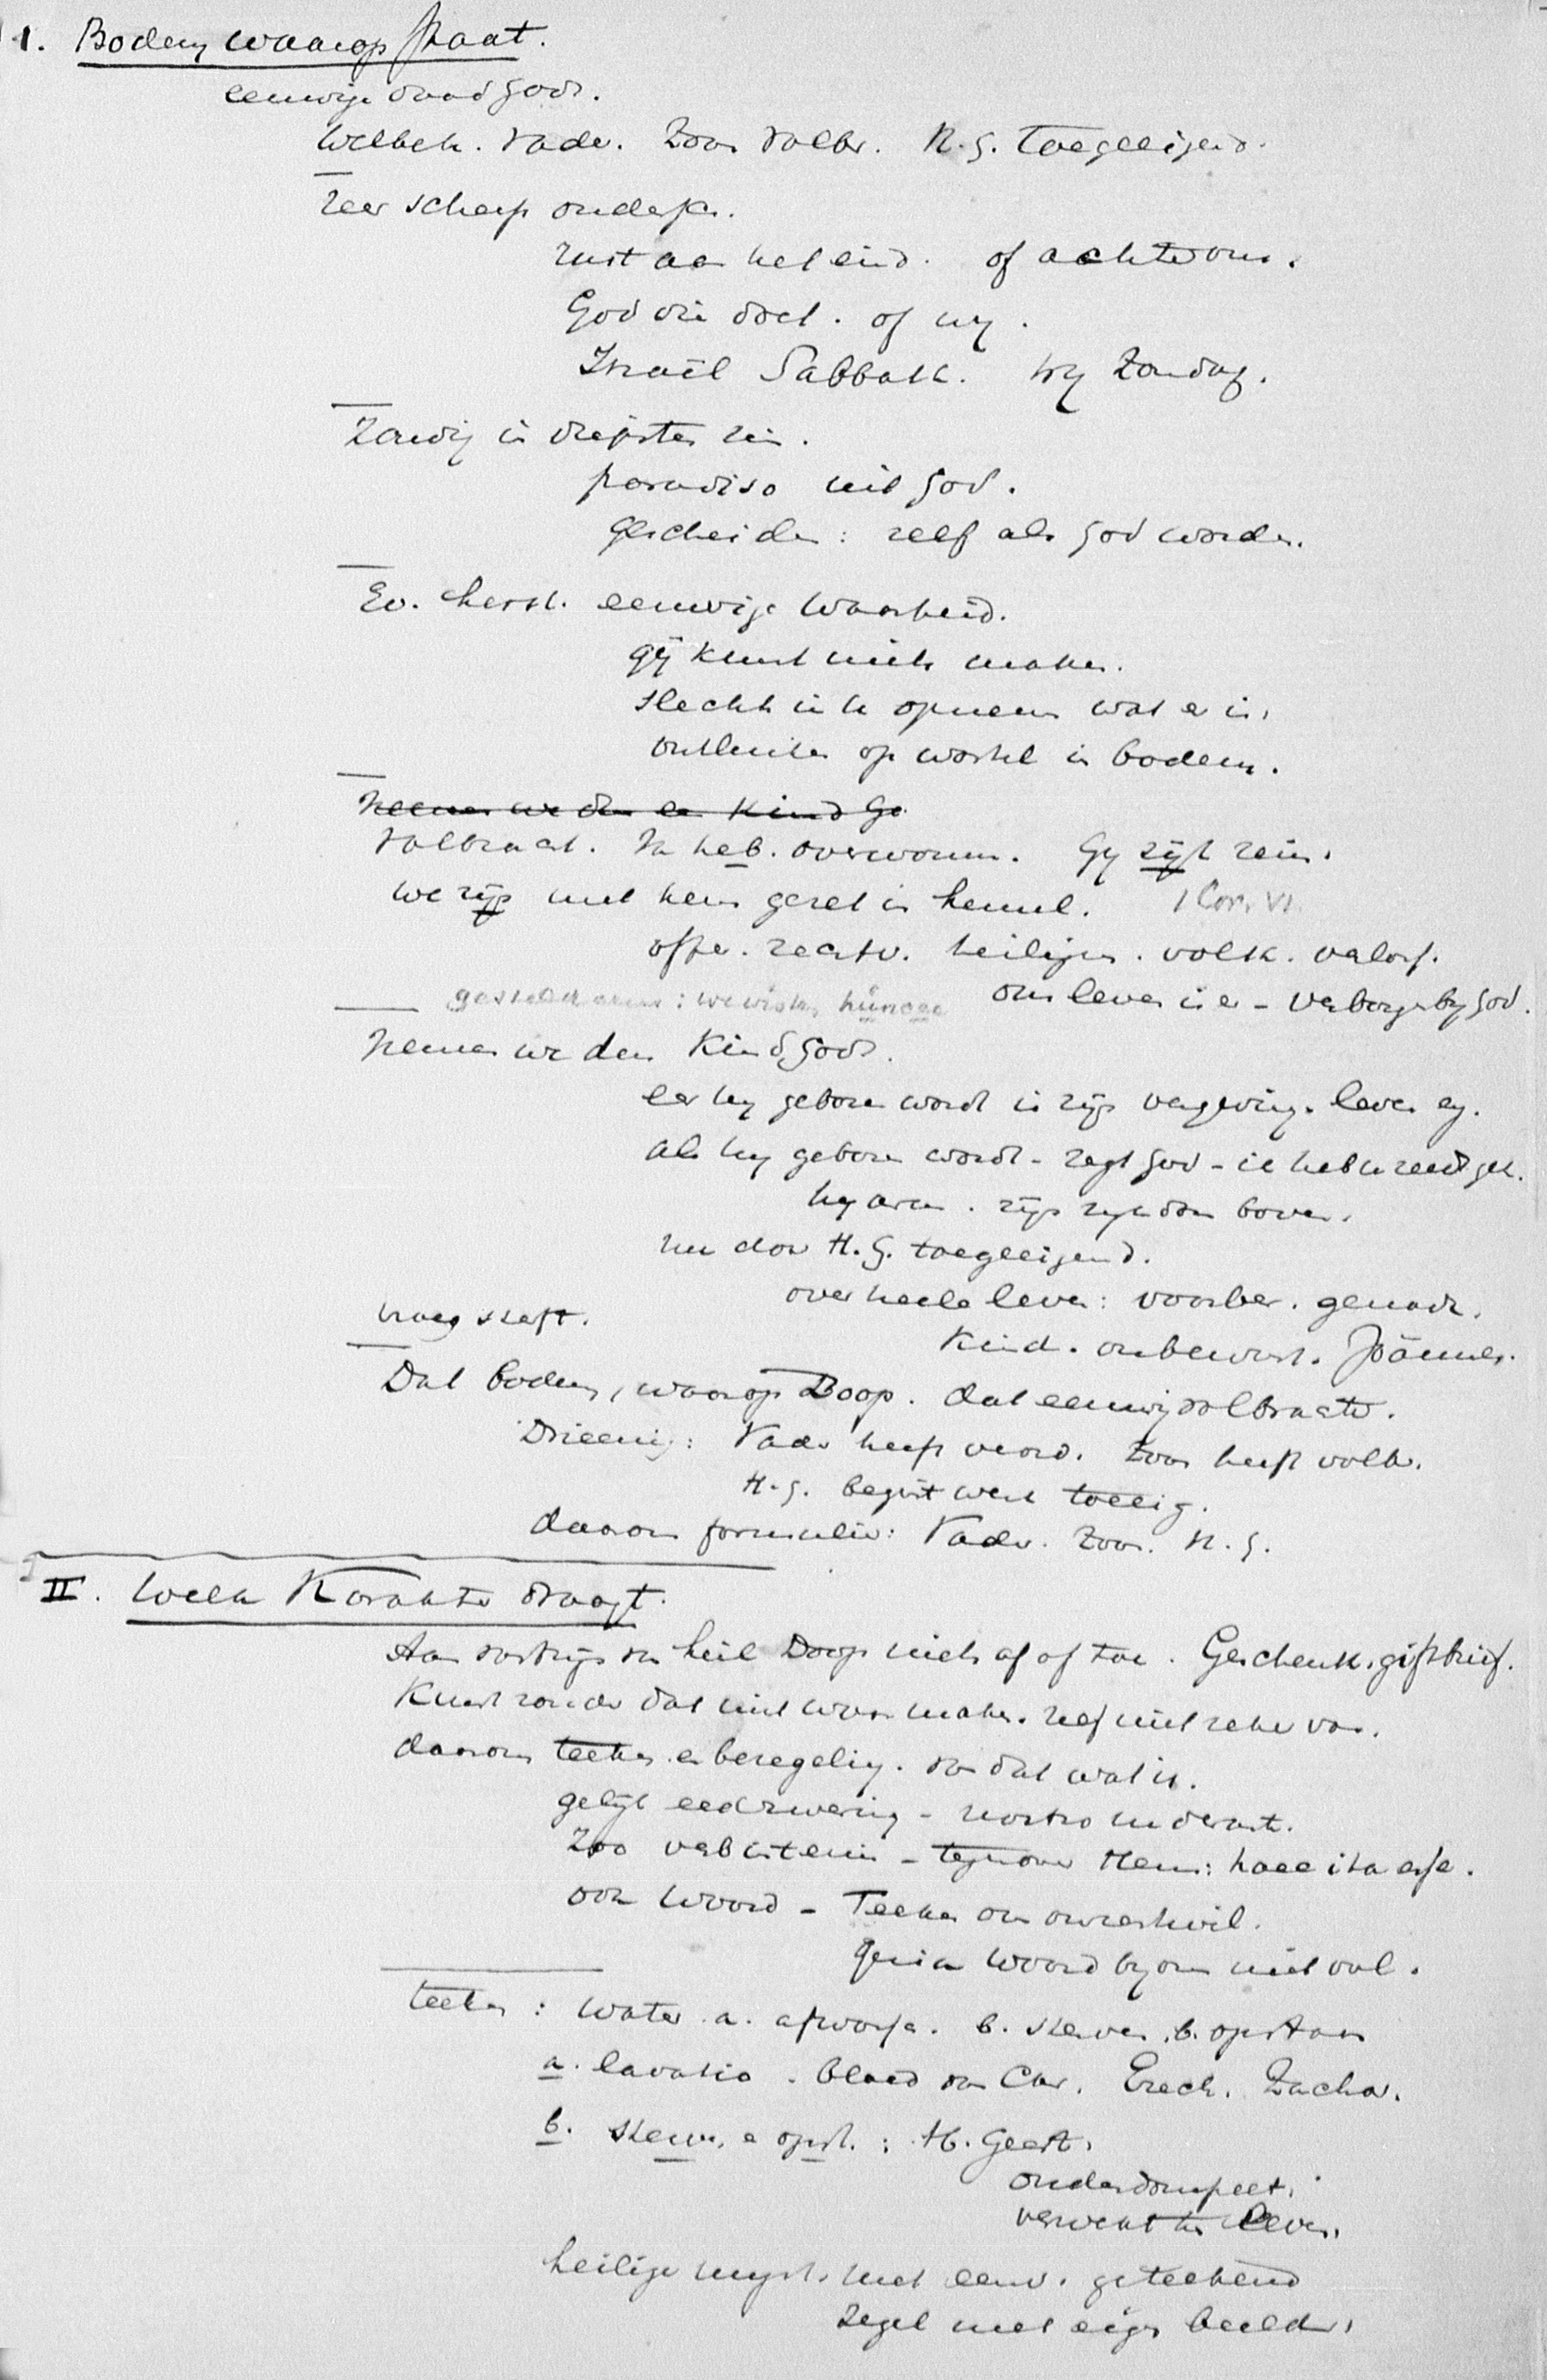 1. Bodem waarop staat.
eeuwige daad Gods.
Welbeh. Vader. Zoon volbr. H.G. toegeeigend.
zeer scherp ondersch.
rust aan het eind. of achter ons.
God die doet. of wy.
Israël Sabbath. wy Zondag.
Zondig in diepsten zin.
paradiso uit God.
gescheiden: zelf als God worden.
Ev. herst. eeuwige waarheid.
gij kunt niets maken.
slechts in u opnemen wat er is,
ontluiken op wortel in bodem.
Nemen we dan een Kind Go
Volbracht. Ik heb. overwonnen. Gy zijt rein.
we zijn met hem gezet in hemel. 1 Cor. VI.
offer. rechtv. heiligm. volk. verlos.
ons leven is er - verborgen by God.
Nemen we den Kind Gods.
eer hy geboren wordt is zijn vergeving. leven eg.
als hy geboren wordt - zegt God - ik heb u reeds gek.
hy arm. zijn zyn daar boven.
nu door H.G. toegeeigend.
over heele leven: voorber. genade.
vraag straft.
Kind. onbewust. Joännes.
Dat bodem, waarop Doop. dat eeuwig volbrachte.
Drieenig: Vader heeft veord. Zoon heeft volbr.
H.G. begint werk toeeig.
daarom formulier: Vader. Zoon. H.G.
II. Welk Karakter draagt.
Aan verkrijg van heil Doop niets af of toe. Geschenk, giftbrief.
Kunt zonder dat niet waar maken. zelf niet zeker van.
daarom teeken en bezegeling. van dat wat is.
gelijk eedzwering - nostro
Zoo verbintenis - tegenover Hem: haec ita esse.
ook Woord - Teeken om onzentwil.
Genia Woord by ons niet vol.
teeken: water a. afwassen. b. sterven, b. opstaan
a. lavatio. bloed van Chr. Ezech. Zachar.
b. sterven, en opst.: H. Geest.
onderdompelt.
verwekt ten leven.
heilige myst. met eenv. geteekend
zegel met eigen beelden.